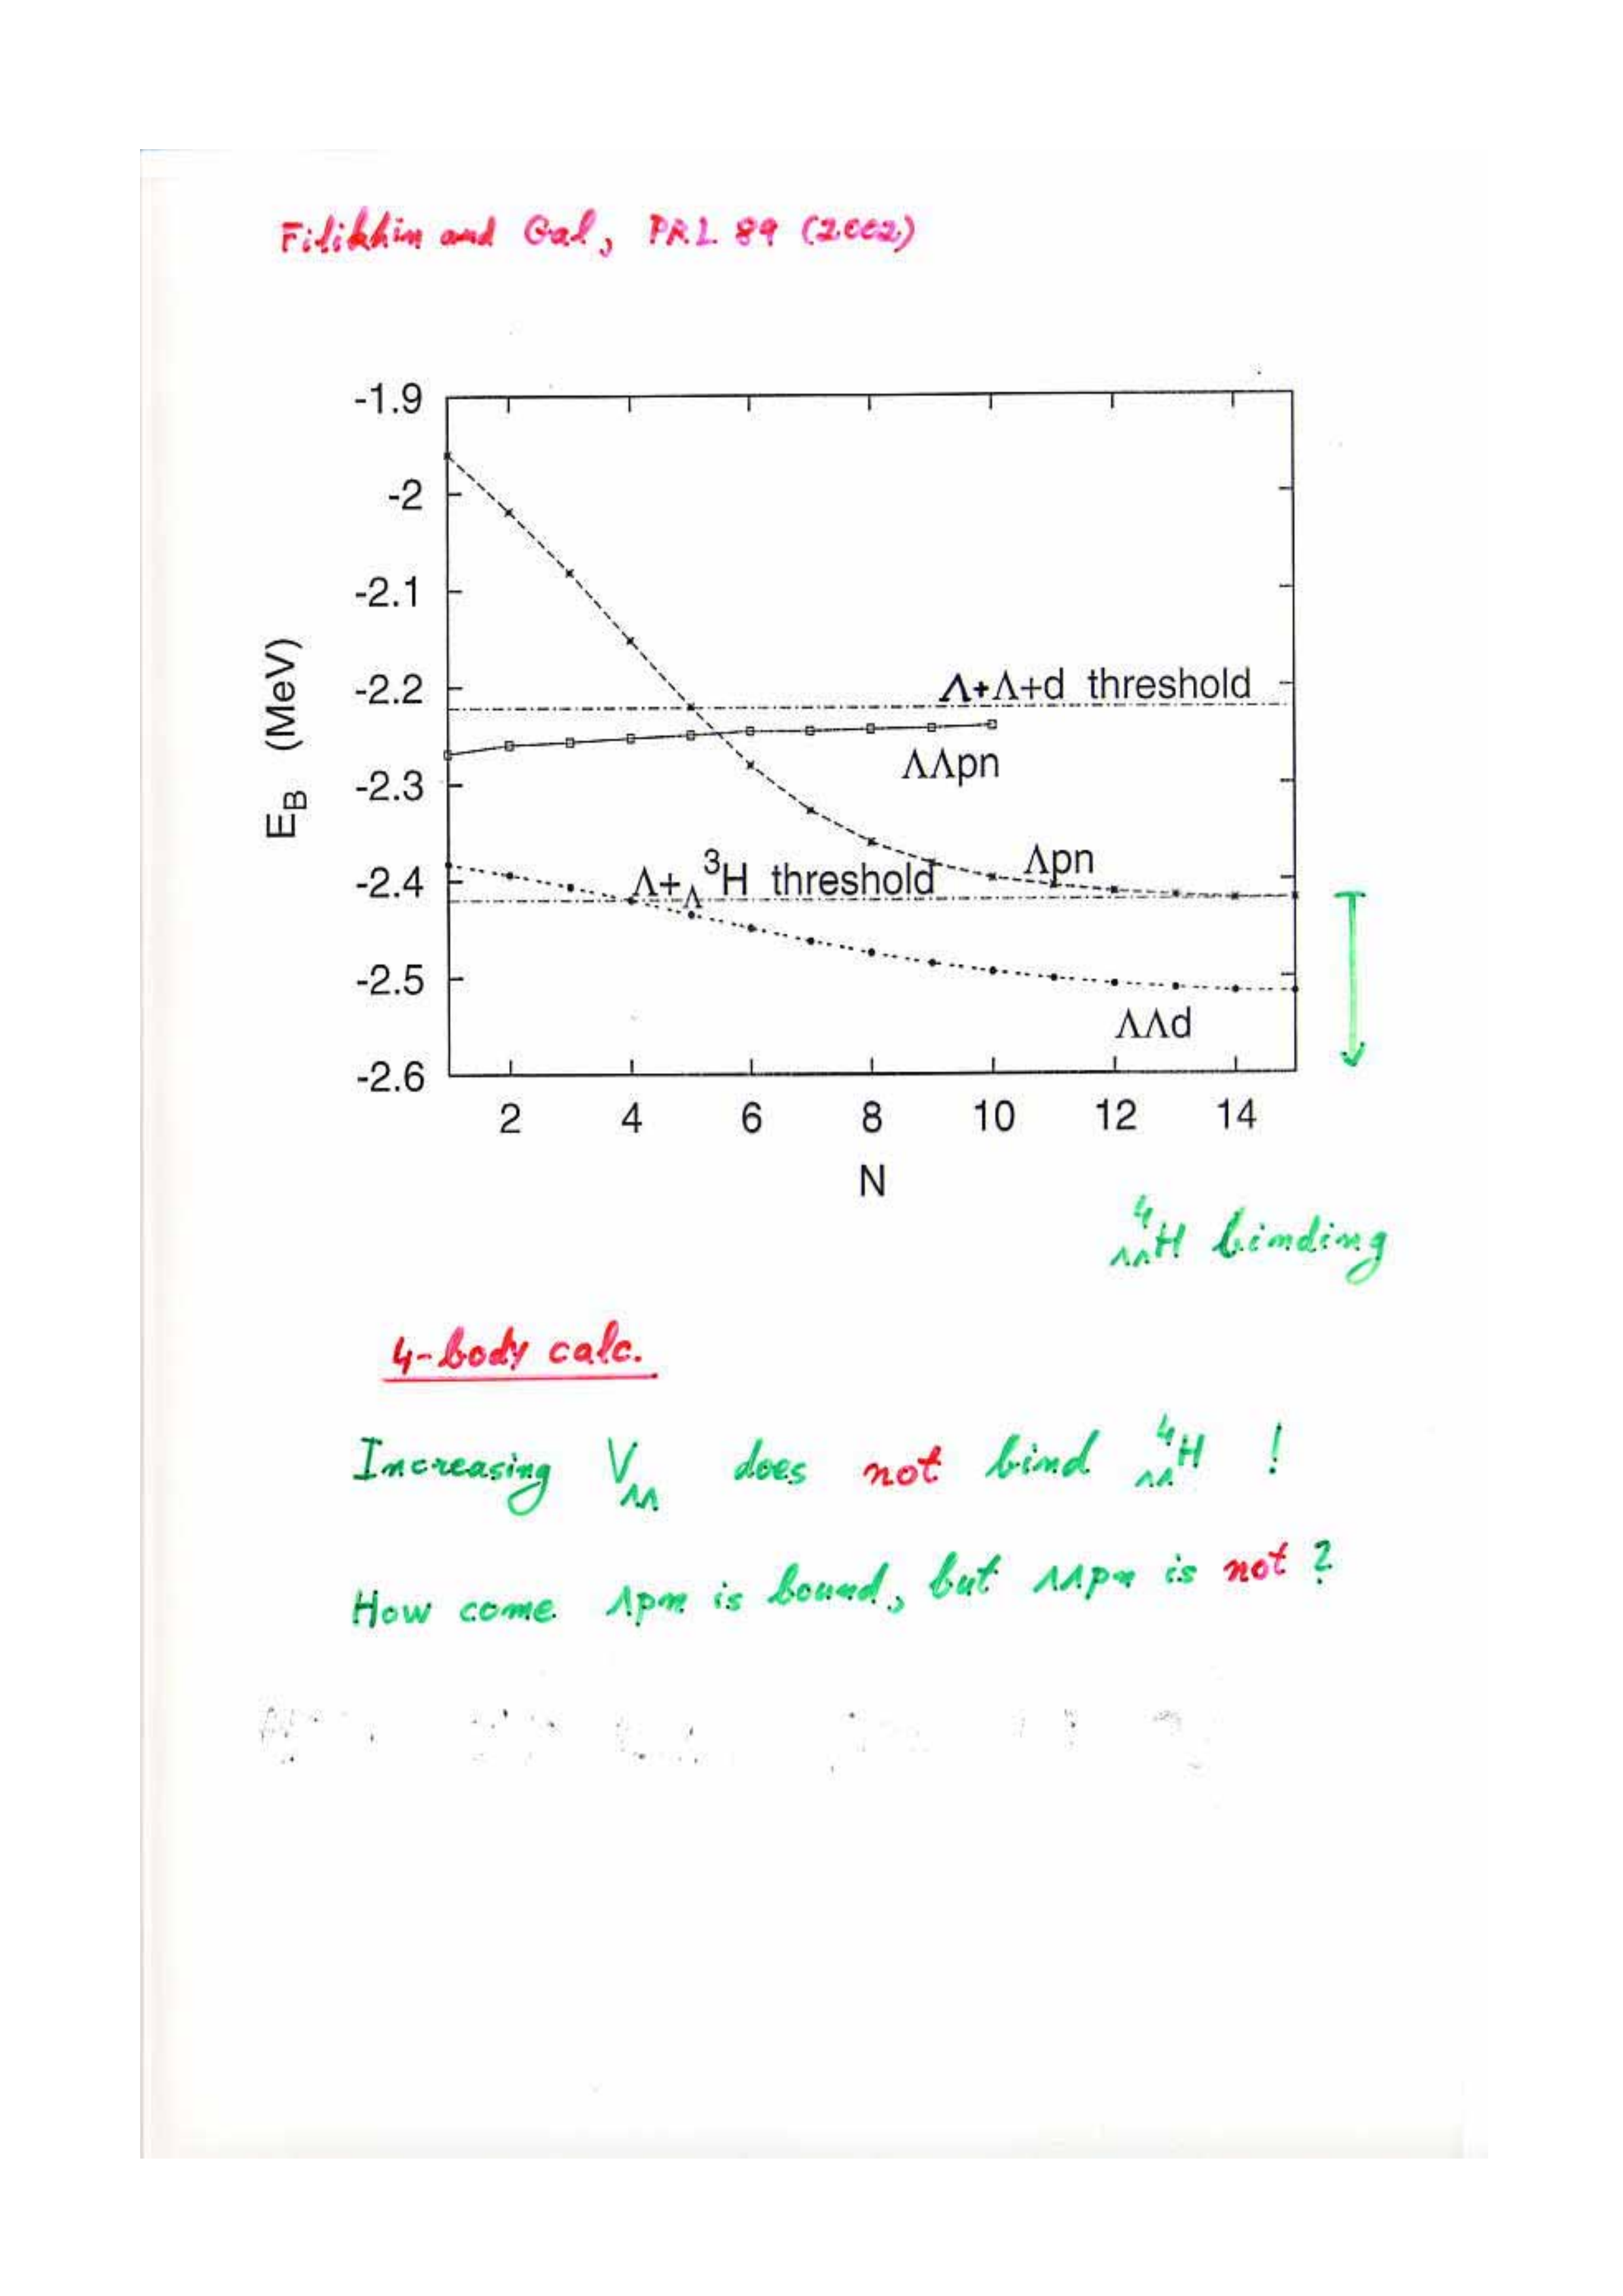 Filikhin and Gal, PRL 89 (2002)
-1.9
-2
-2.1
-2.2
-2.3
-2.4
-2.5
-2.6
E_B (MeV)
Λ+Λ+d threshold
ΛΛpn
Λ+_Λ^3H threshold
Λpn
ΛΛd
2 4 6 8 10 12 14
N
_ΛΛ^4H binding
4-body calc.
Increasing V_ΛΛ does not bind _ΛΛ^4H !
How come Λpn is bound, but ΛΛpn is not ?